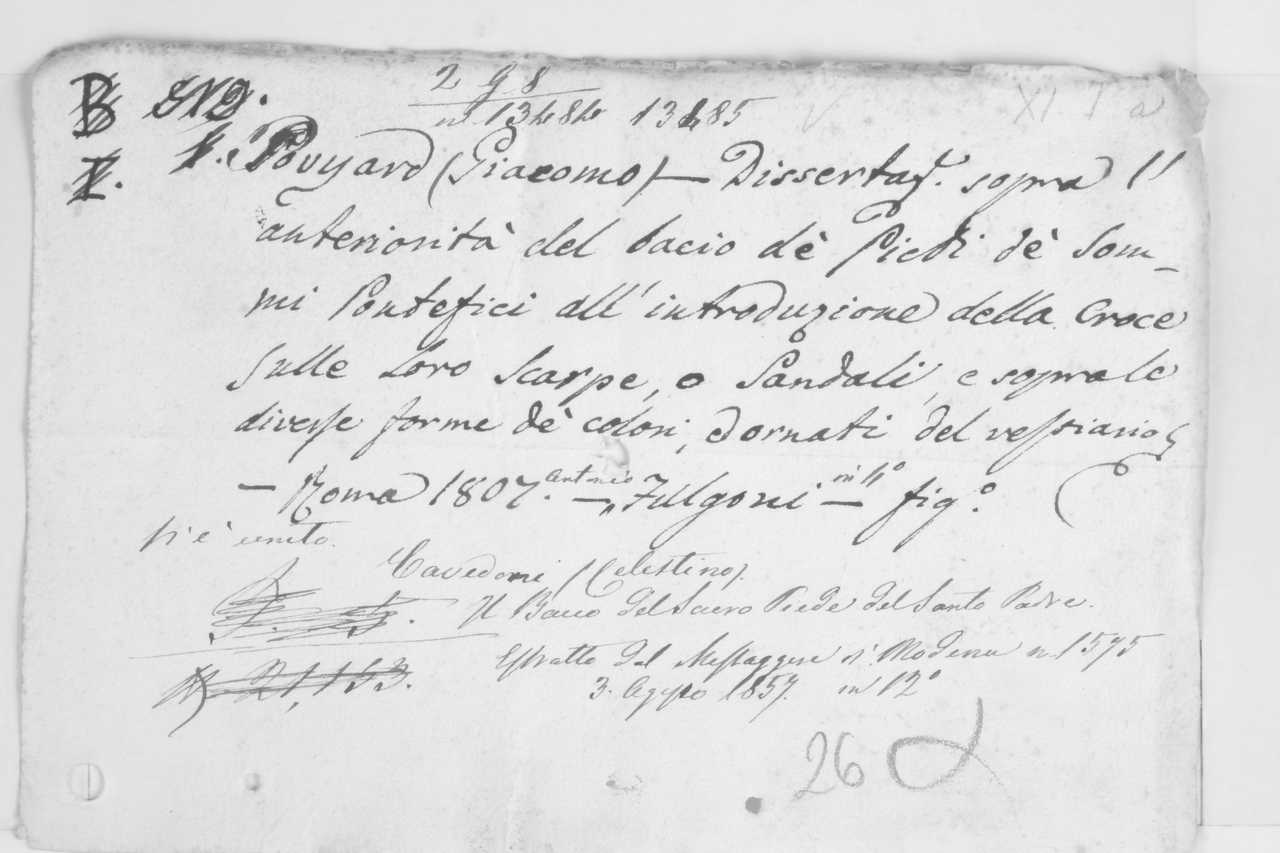 2 9 8
B SND.
n. 13484 13485
XI I a
I. Pouyard (Giacomo) — Dissertaz. sopra l'
anteriorità del bacio dè Piedi dè Som-
mi Pontefici all'introduzione della Croce
sulle loro Scarpe, o Sandali, e sopra le
diverse forme dè colori, ed ornati del vestiario
— Roma 1807. — Antonio Fulgoni — in 4° fig.°
Vi è unito.
Cavedoni (Celestino).
Il Bacio del Sacro Piede del Santo Padre.
Estratto dal Messaggere di Modena n. 1575
21,153.
3. Agosto 1857. in 12°
26